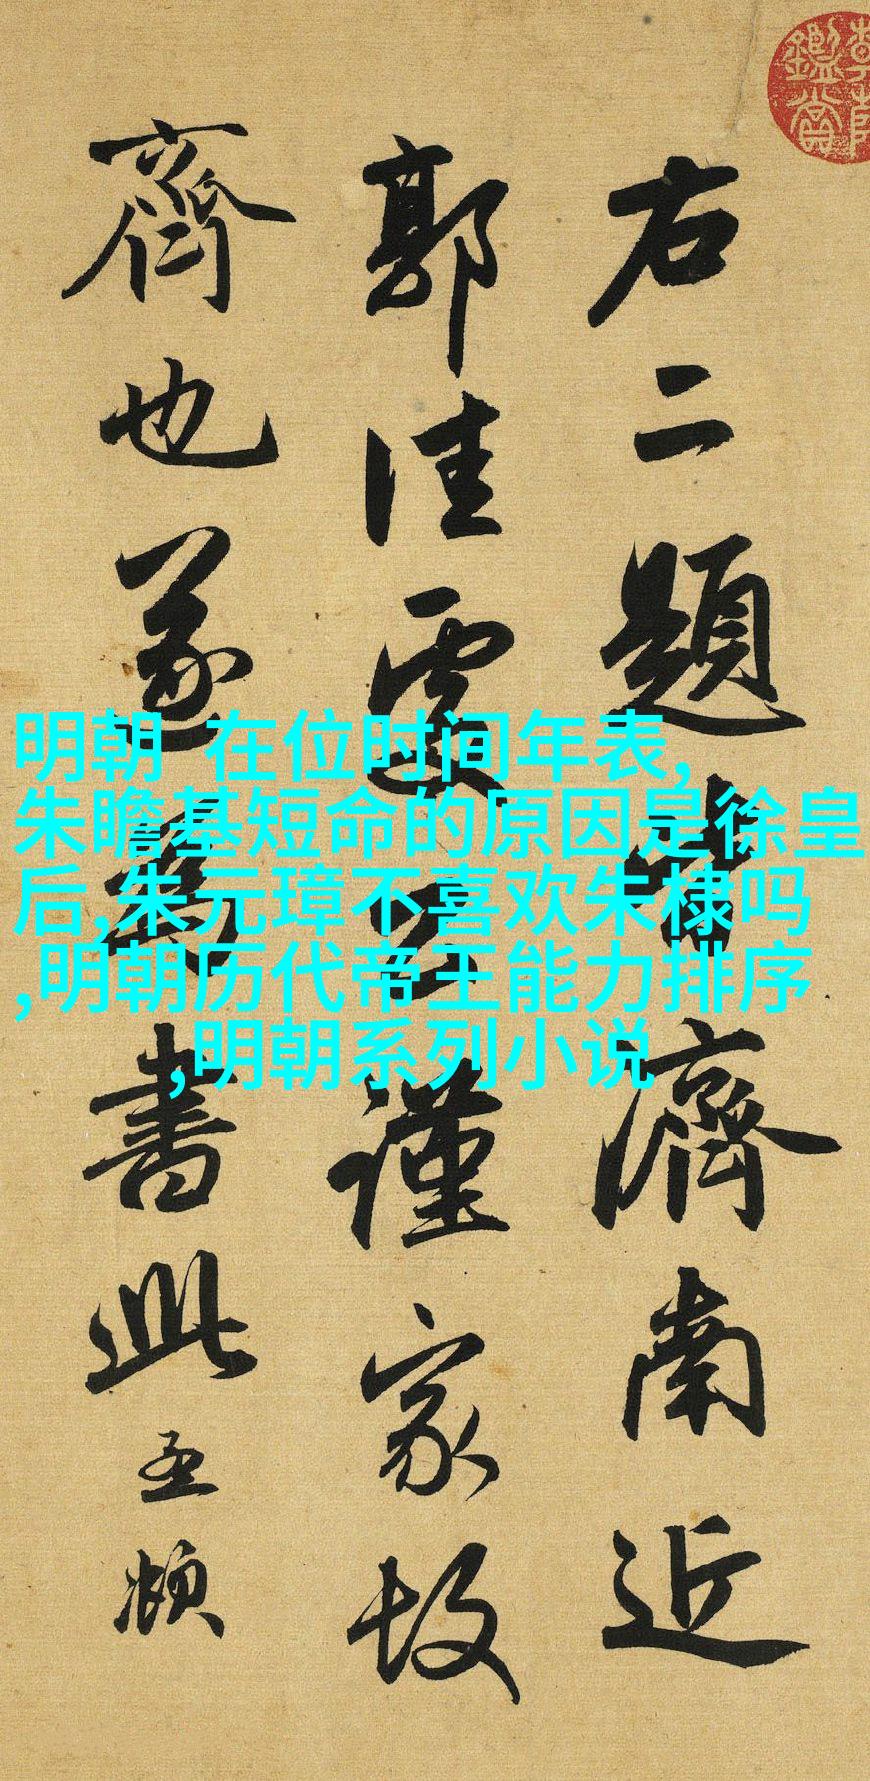 右二題皆濟南近
郭佳處公謹家故
齊也遂為書此孟頫
明朝 在位时间年表,
朱瞻基短命的原因是徐皇
后,朱元璋不喜欢朱棣吗
,明朝历代帝王能力排序
,明朝系列小说